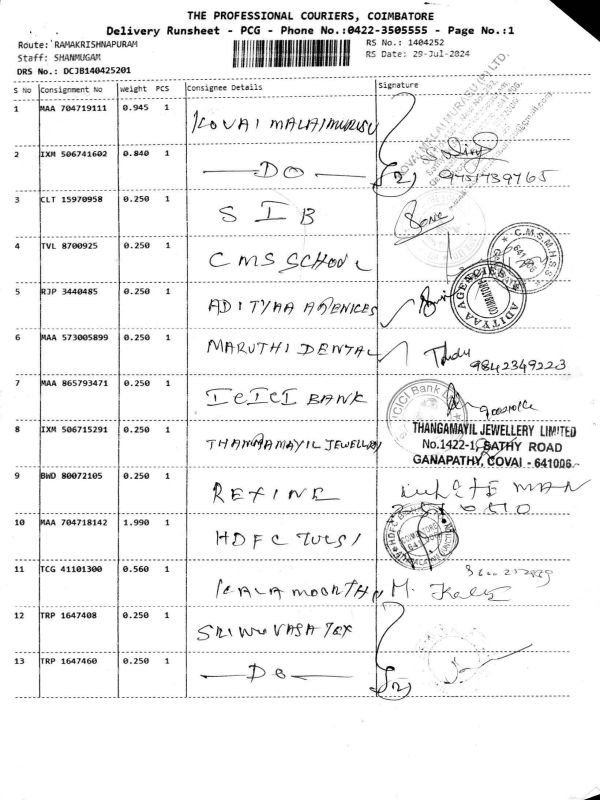 THE PROFESSIONAL COURIERS, COIMBATORE
Delivery Runsheet - PCG - Phone No.:0422-3505555 - Page No.:1
Route: RAMAKRISHNAPURAM
RS No.: 1404252
Staff: SHANMUGAM
RS Date: 29-Jul-2024
DRS No.: DCJB140425201
S No Consignment No Weight PCS Consignee Details Signature
1 MAA 704719111 0.945 1 KOVAI MALAIMURUSU
2 IXM 506741602 0.840 1 DO (2) 9751739765
3 CLT 15970958 0.250 1 SIB
4 TVL 8700925 0.250 1 CMS SCHOOL C.M.S.M.H.S.S
5 RJP 3440485 0.250 1 ADITYAA AGENICES ADITYAA AGENCIES COIMBATORE
6 MAA 573005899 0.250 1 MARUTHI DENTAL 9842349223
7 MAA 865793471 0.250 1 ICICI BANK ICICI Bank
8 IXM 506715291 0.250 1 THANGAMAYIL JEWELLERY THANGAMAYIL JEWELLERY LIMITED
No.1422-1, SATHY ROAD
GANAPATHY, COVAI - 641006
9 BWD 80072105 0.250 1 REFINE
10 MAA 704718142 1.990 1 HDFC TULSI HDFC
11 TCG 41101300 0.560 1 KALAMOORTHY M.
12 TRP 1647408 0.250 1 SRINIVASA TEX
13 TRP 1647460 0.250 1 DO (2)